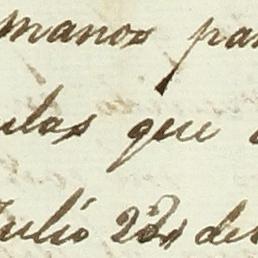 manos pa
ulas que
Julio 22, de